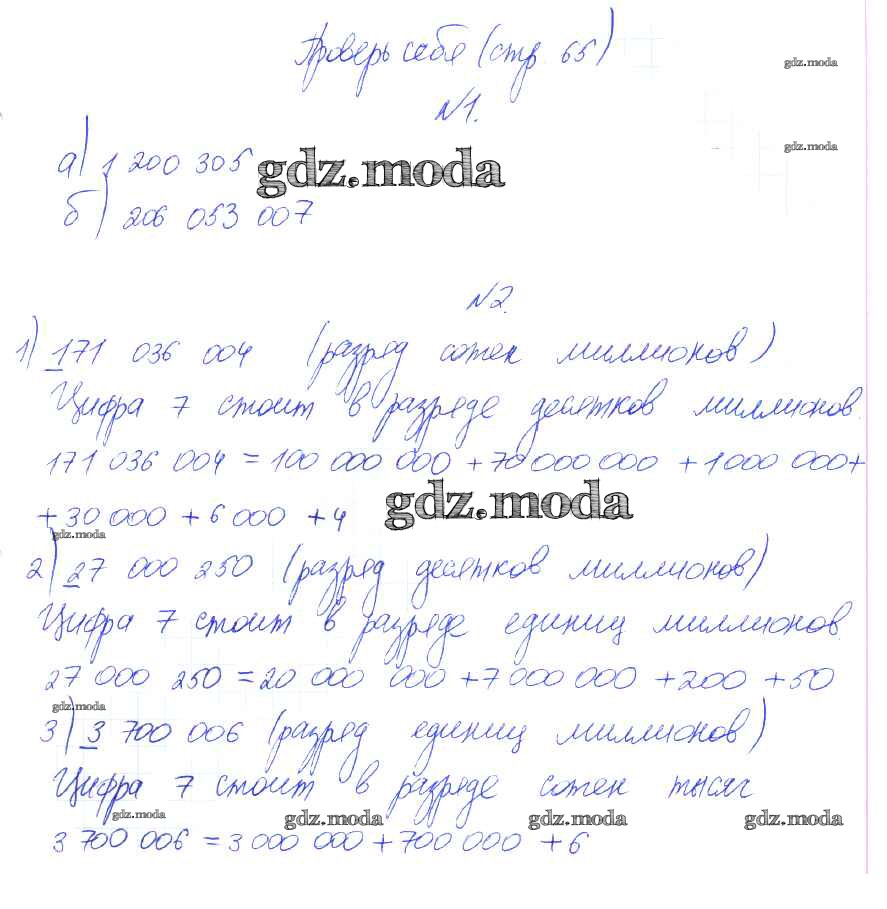 Проверь себя (стр. 65)
gdz.moda
№1.
gdz.moda
а) 1 200 305
gdz.moda
б) 206 053 007
№2.
1) 171 036 004 (разряд сотен миллионов)
Цифра 7 стоит в разряде десятков миллионов.
171 036 004 = 100 000 000 + 70 000 000 + 1 000 000 +
+ 30 000 + 6 000 + 4
gdz.moda
gdz.moda
2) 27 000 250 (разряд десятков миллионов)
Цифра 7 стоит в разряде единиц миллионов.
27 000 250 = 20 000 000 + 7 000 000 + 200 + 50
gdz.moda
3) 3 700 006 (разряд единиц миллионов)
Цифра 7 стоит в разряде сотен тысяч
gdz.moda gdz.moda gdz.moda gdz.moda
3 700 006 = 3 000 000 + 700 000 + 6